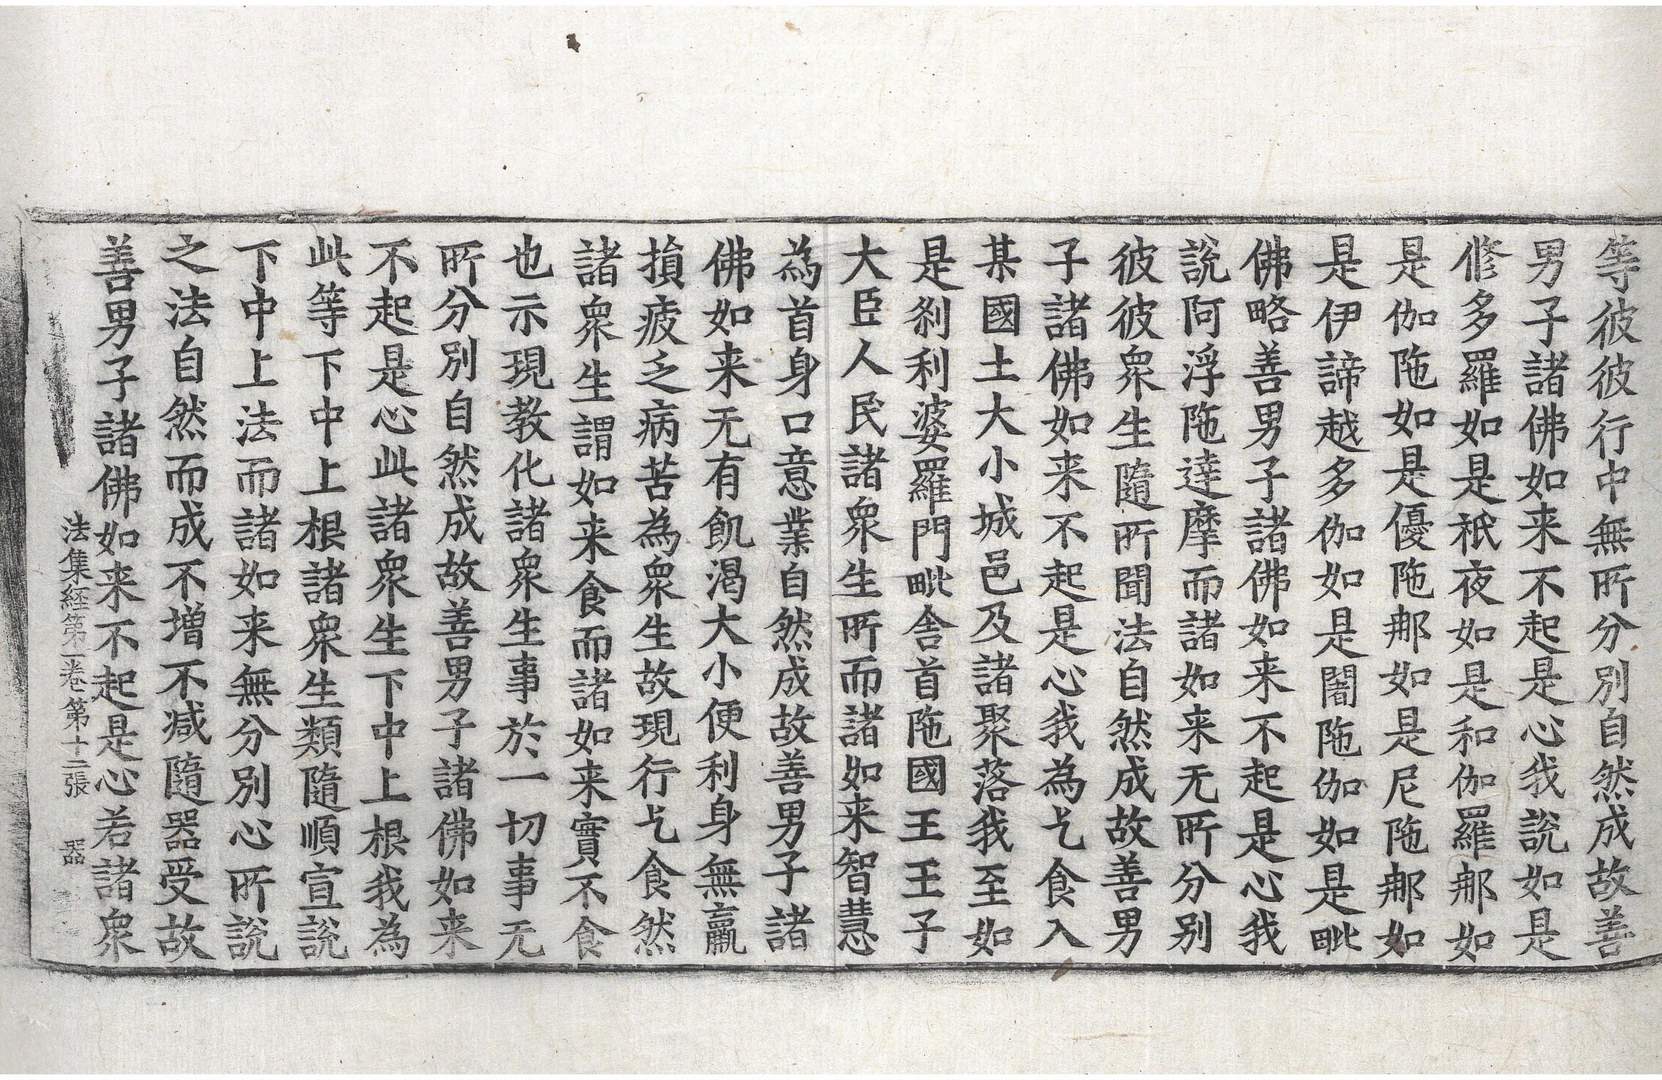 等彼彼行中無所分別自然成故善
男子諸佛如来不起是心我說如是
修多羅如是祇夜如是和伽羅𨚗如
是伽陁如是優陁𨚗如是尼陁𨚗如
是伊諦越多伽如是闍陁伽如是毗
佛略善男子諸佛如来不起是心我
說阿浮陁達摩而諸如来无所分別
彼彼衆生隨所聞法自然成故善男
子諸佛如来不起是心我為乞食入
某國土大小城邑及諸聚落我至如
是刹利婆羅門毗舍首陁國王王子
大臣人民諸衆生所而諸如来智慧
為首身口意業自然成故善男子諸
佛如来无有飢渴大小便利身無羸
損疲乏病苦為衆生故現行乞食然
諸衆生謂如来食而諸如来實不食
也示現教化諸衆生事於一切事无
所分別自然成故善男子諸佛如来
不起是心此諸衆生下中上根我為
此等下中上根諸衆生類隨順宣說
下中上法而諸如来無分別心所說
之法自然而成不增不減隨器受故
善男子諸佛如来不起是心若諸衆
法集経第一卷 第十二張 器